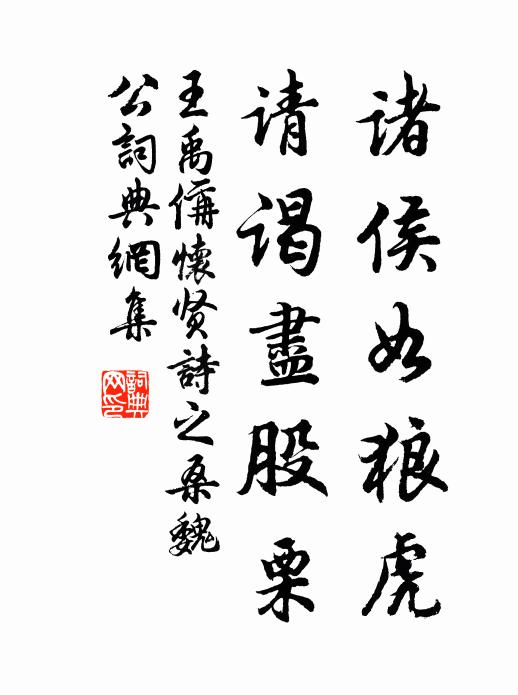 诸侯如狼虎
请谒盡股栗
王禹偁懷贤詩之桑魏
公詞典網集
詞典网印